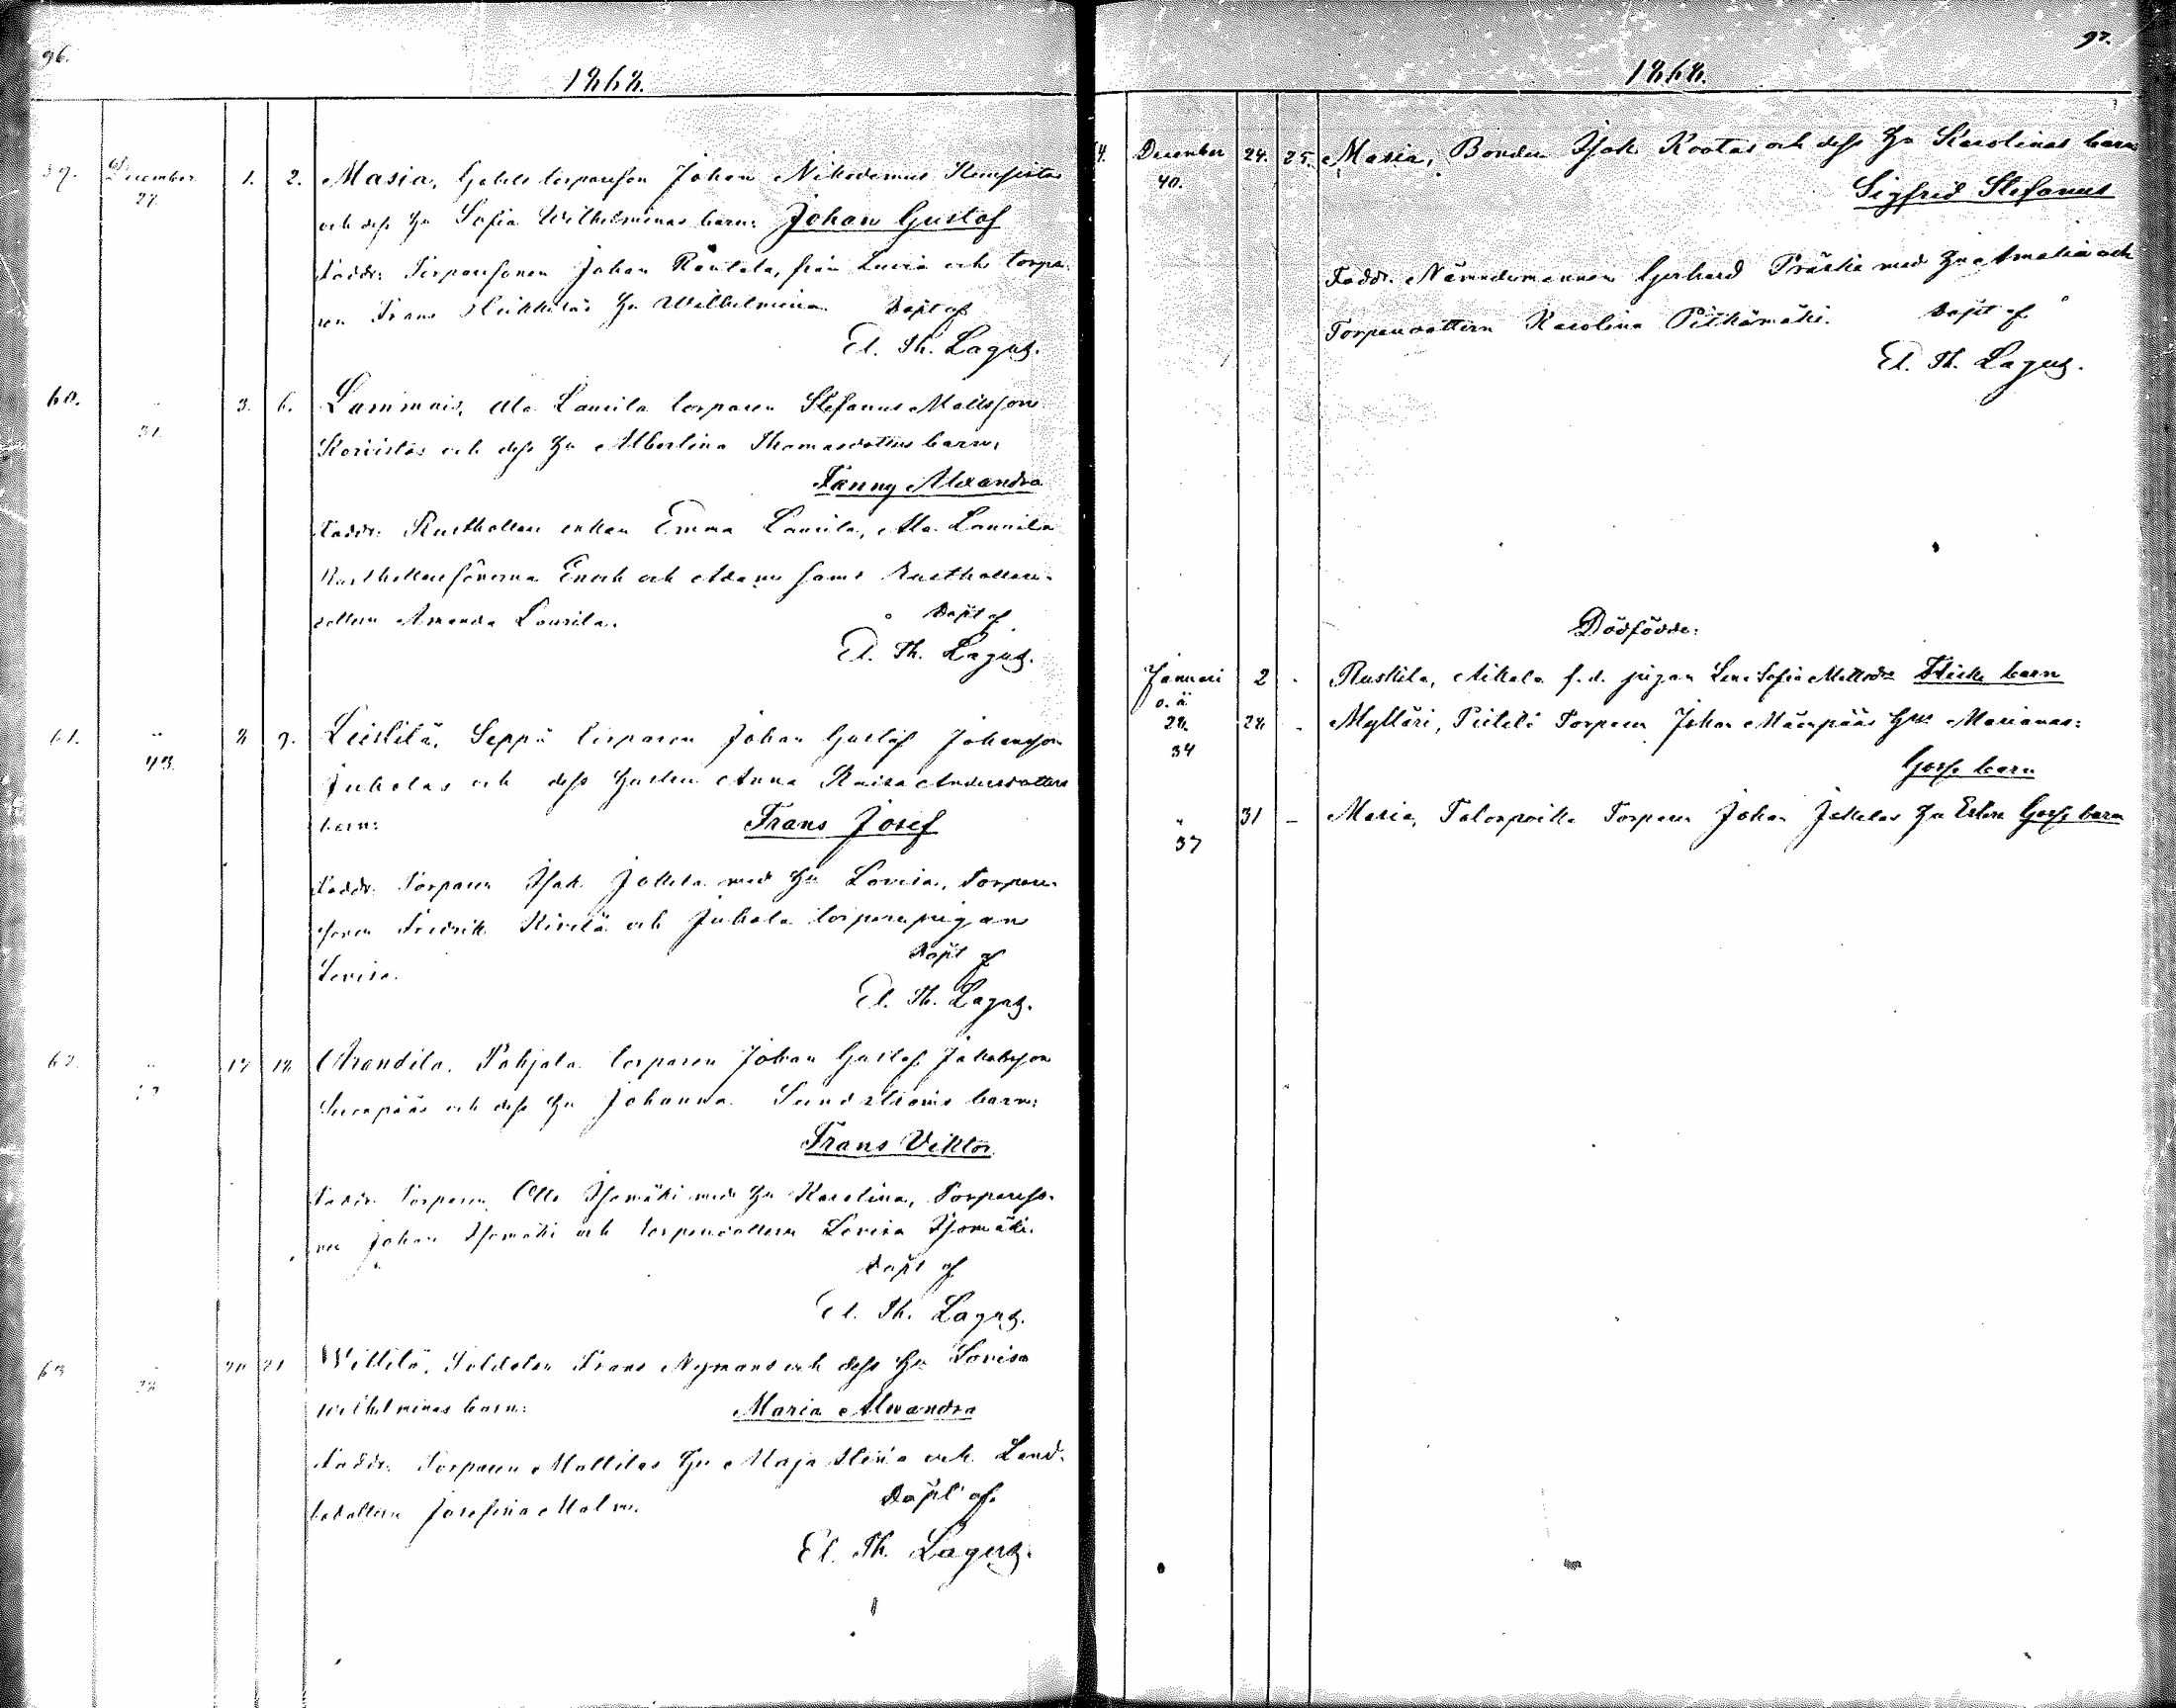 96.
1868.
59. December 1. 2. Masia, Gabels torpareson Johan Nikodemus
27. och dess hu Sofia Wilhelminas barn: Johan Gustaf
Faddr: Torparesonen Johan Rantala, från Luvia och torpa-
ren Frans Heikkiläs hu Wilhelmina. Döpt af
El. Th. Lagus.
60. " 3. 6. Lammais, Ala Laurila torparen Stefanus Mattsson
31. Koivistos och dess hu Albertina Thomasdotters barn:
Fanny Alexandra
Faddr: Rusthållare enkan Emma Laurila, Ala Laurila
Rusthållaresönerna Enoch och Adam samt Rusthållare-
dottern Amanda Laurila. Döpt af
El. Th. Lagus.
61. " 8 9. Leistilä, Seppä torparen Johan Gustaf Johansson
43. Juholas och dess hustru Anna Kaisa Andersdotters
barn: Frans Josef
Faddr. Torparen Isak Jokela med hu Lovisa, Torpare-
sonen Fredrik Kivelä och Juhola torparepigan
Lovisa. Döpt af
El. Th. Lagus.
62. " 17 18 Arandila, Pohjala torparen Johan Gustaf Jakobsson
och dess hu Johanna Sundströms barn:
Frans Viktor
Faddr. Torparen Otto Isomäki med hu Karolina, Torpareso-
nen Johan Isomäki och torparedottern Lovisa Isomäki.
Döpt af
El. Th. Lagus.
63 " 20 21 Wittilä, Soldaten Frans Nymans och dess hu Lovisa
38 Wilhelminas barn: Maria Alexandra
Faddr. Torparen Mattilas hu Maja Stina och
Josefina Malm. Döpt af.
El. Th. Lagus.
97.
1868.
4. December 24. 25. Masia, Bonden Isak Rootas och dess hu Karolinas barn
40. Sigfrid Stefanus
Faddr. Nämndemannen Gerhard Präski med hu Amalia och
Torparedottern Karolina Pitkämäki. Döpt af
El. Th. Lagus.
Dödfödde:
Januari 2 - Ruskila, Mikola f.d. pigan Lena Sofia Mattsdr Flicke barn
o.ä.
24. 28 - Mylläri, Pietilä Torparen Johan Mäenpääs hus Marianas:
34 Gosse barn
" 31 - Masia, Torparen Johan Jokelas hu Gosse barn
37